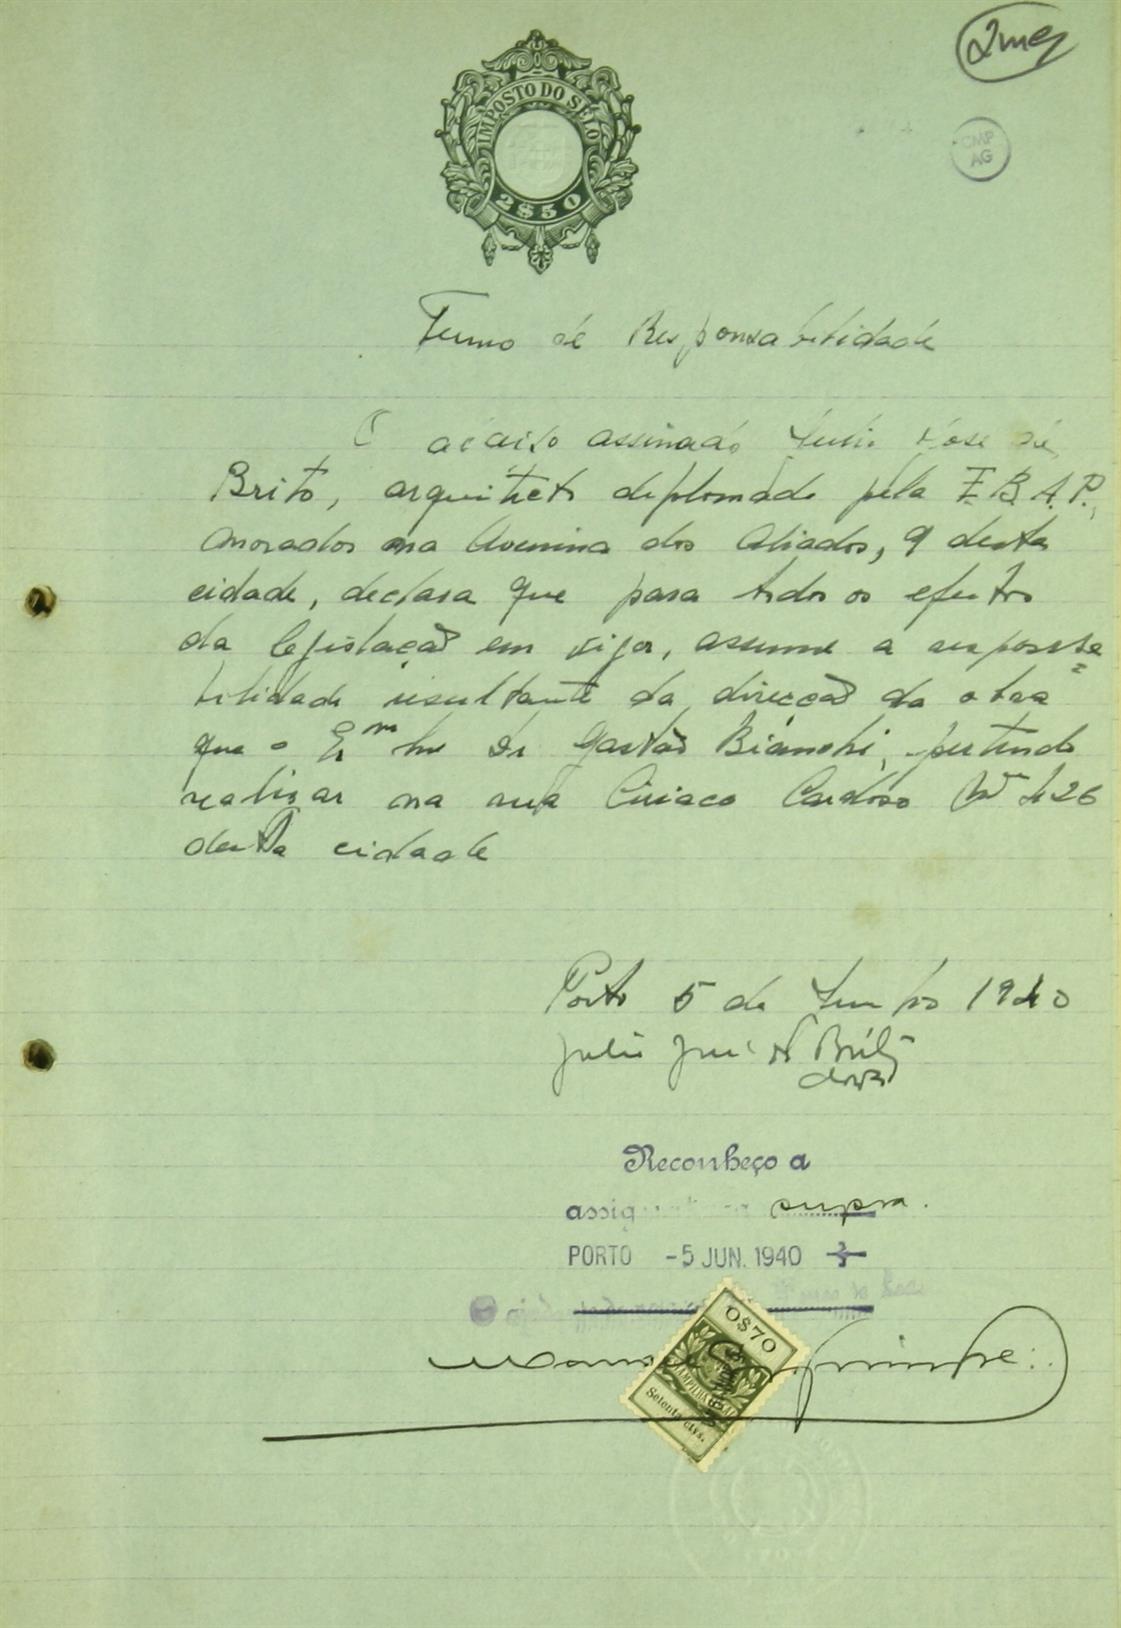 IMPOSTO DO SELO
2$50
CMP
AG
Termo de Responsabilidade
O abaixo assinado Julio José de
Brito, arquitecto diplomado pela E.B.A.P.,
morador na Avenina dos Aliados, 9 desta
cidade, declara que para todos os efeitos
da legislação em vigor, assume a responsa=
bilidade resultante da direcção da obra
que o Exmo Snr Dr Gastão Bianchi, pretende
realizar na rua Ciriaco Cardoso Nº 426
desta cidade
Porto 5 de Junho 1940
Julio José de Brito
Reconheço a
assig supra.
PORTO -5 JUN. 1940
0$70
Setenta ctvs.